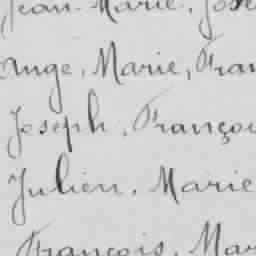 Jean-Marie, Jose
Ange, Marie, Fran
Joseph, Françoi
Julien, Marie
François, Mar